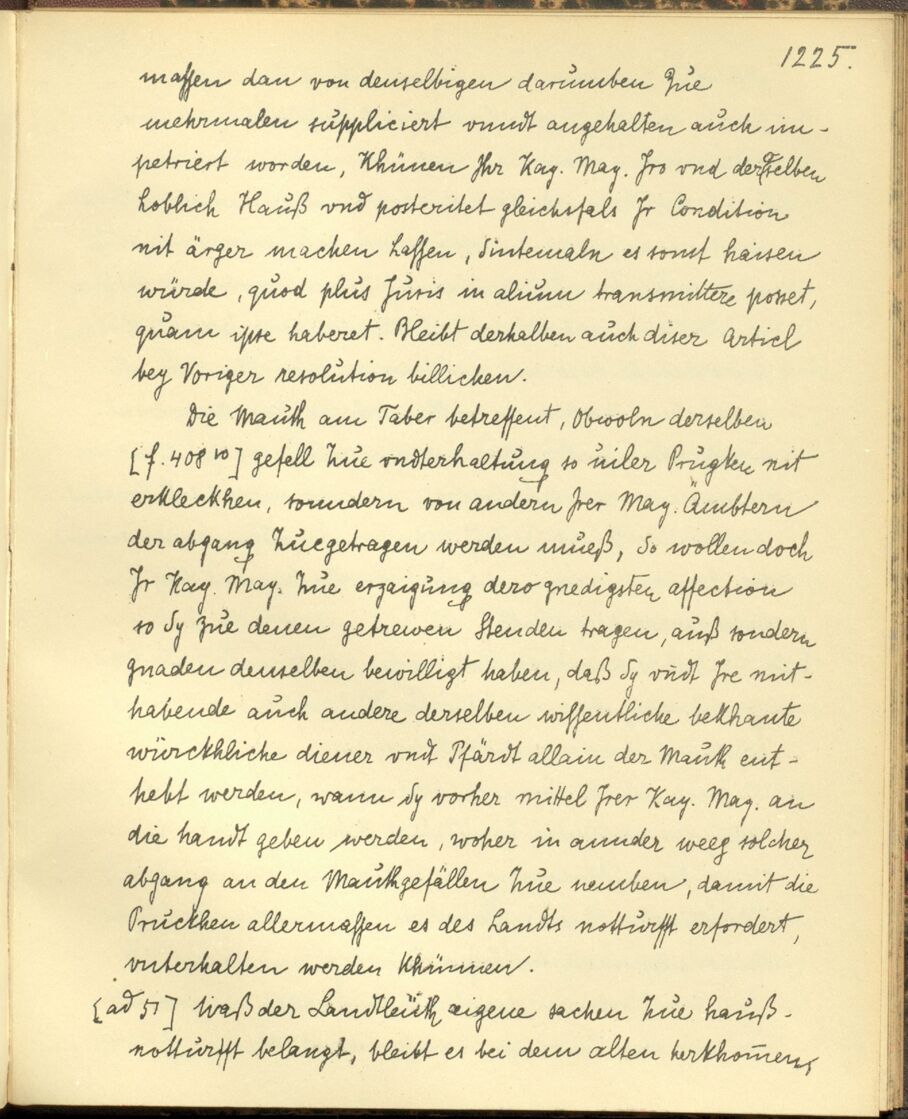 1225.
massen dan von denselbigen darumben Zue
mehrmalen suppliciert vnndt angehalten auch im-
petriert worden, Khünen Ihr Kay. May. Jro vnd derselben
loblich Hauß vnd posteritet gleichsfals Jr Condition
nit ärger machen lassen, Sintemaln es sonst haisen
würde, quod plus Juris in alium transmittere posset,
quam ipse haberet. Bleibt derhalben auch diser Articl
bey Voriger resolution billichen.
Die Mauth am Taber betreffent, Obwoln derselben
[f. 408 vo] gefell Zue vndterhaltung so uiler Prugken nit
erkleckhen, sonndern von andern Jrer May. Ämbtern
der abgang Zuegetragen werden mueß, So wollen doch
Jr Kay. May. Zue erzaigung dero gnedigsten affection
so Sy Zue denen getrewen Stenden tragen, auß sondern
gnaden denselben bewilligt haben, daß Sy vndt Jre mit-
habende auch andere derselben wissentliche bekhante
würckhliche diener vnd Pfärdt allain der Mauth ent-
hebt werden, wann Sy vorher mittel Jrer Kay. May. an
die handt geben werden, woher in annder weeg solcher
abgang an den Mauthgefällen Zue nemben, damit die
Pruckhen allermassen es des Landts notturfft erfordert,
vnterhalten werden Khünnen.
[ad 51] Waß der Landtleüth aigene sachen Zue hauß-
notturfft belangt, bleibt es bei dem alten herkhomens